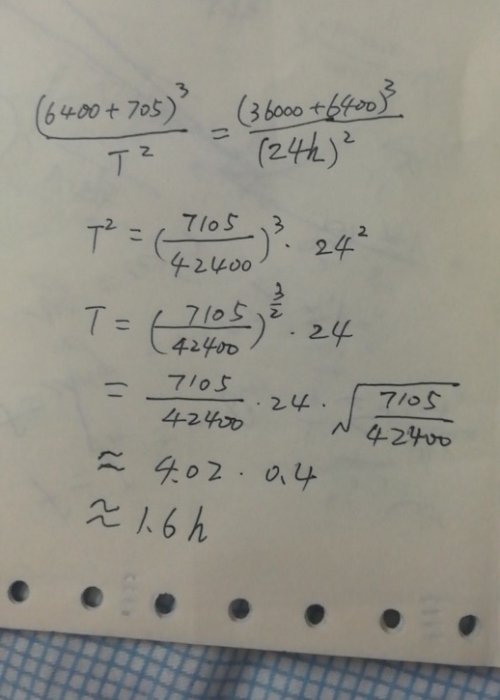 (6400+705)³/T² = (36000+6400)³/(24h)²
T² = (7105/42400)³ · 24²
T = (7105/42400)^(3/2) · 24
= 7105/42400 · 24 · √(7105/42400)
≈ 4.02 · 0.4
≈ 1.6h